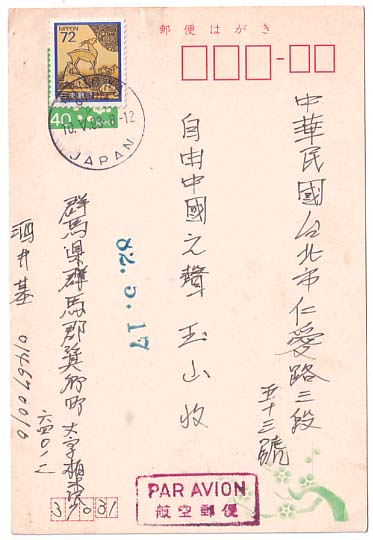 郵便はがき
NIPPON
72
40
JAPAN
中華民國台北市仁愛路三段
五十三號
自由中國之聲 玉山收
82.5.17
群馬県群馬郡箕郷町大字柏木沢
酒井基
PAR AVION
航空郵便